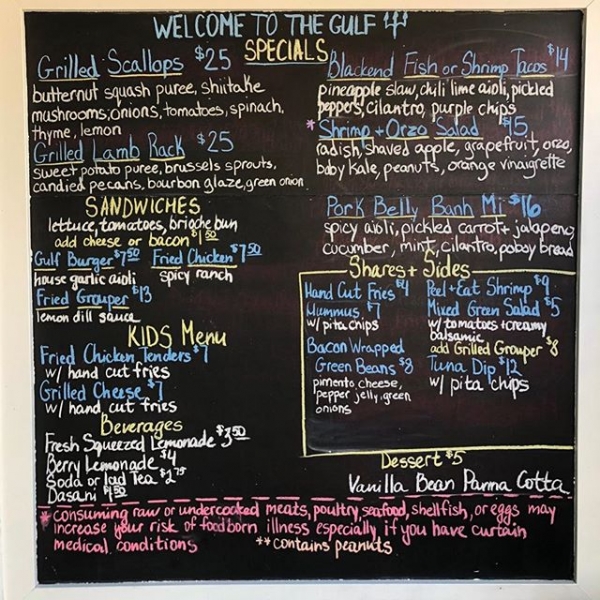 WELCOME TO THE GULF
SPECIALS
Grilled Scallops $25
butternut squash puree, shiitake
mushrooms, onions, tomatoes, spinach,
thyme, lemon
Grilled Lamb Rack $25
sweet potato puree, brussels sprouts,
candied pecans, bourbon glaze, green onion
Blackend Fish or Shrimp Tacos $14
pineapple slaw, chili lime aioli, pickled
peppers, cilantro, purple chips
* Shrimp + Orzo Salad $15
radish, shaved apple, grapefruit, orzo,
baby kale, peanuts, orange vinaigrette
Pork Belly Banh Mi $16
spicy aioli, pickled carrot + jalapeno
cucumber, mint, cilantro, poboy bread
SANDWICHES
lettuce, tomatoes, brioche bun
add cheese or bacon $1.50
Gulf Burger $7.50 Fried Chicken $7.50
house garlic aioli spicy ranch
Fried Grouper $13
lemon dill sauce
KIDS Menu
Fried Chicken Tenders $7
w/ hand cut fries
Grilled Cheese $7
w/ hand cut fries
Beverages
Fresh Squeezed Lemonade $3.50
Berry Lemonade $4
Soda or Iced Tea $2.75
Dasani $1.50
Shares + Sides
Hand Cut Fries $4
Hummus $7
w/ pita chips
Bacon Wrapped
Green Beans $8
pimento cheese,
pepper jelly, green
onions
Peel + Eat Shrimp $9
Mixed Green Salad $5
w/ tomatoes + creamy
balsamic
add Grilled Grouper $8
Tuna Dip $12
w/ pita chips
Dessert $5
Vanilla Bean Panna Cotta
* consuming raw or undercooked meats, poultry, seafood, shellfish, or eggs may
increase your risk of foodborn illness especially if you have curtain
medical conditions **contains peanuts